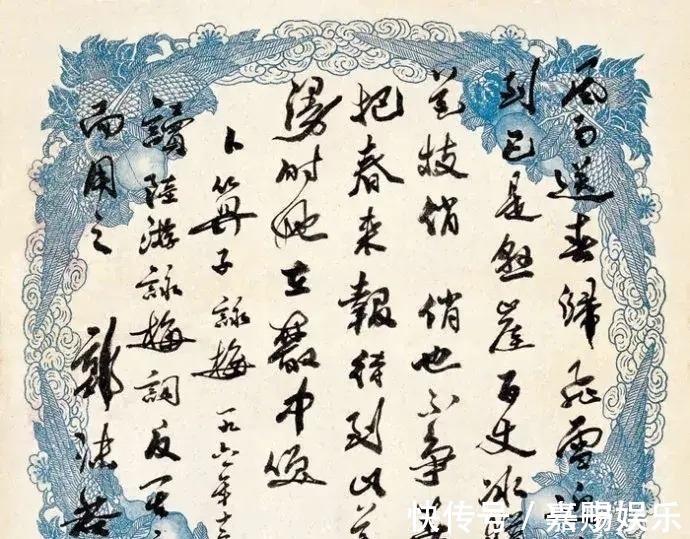 風雨送春歸飛雪迎
到已是懸崖百丈冰
花枝俏 俏也不爭
把春來報待到山花
漫时她在叢中笑
卜算子詠梅 一九六一年十二
讀陸游詠梅詞反其
而用之 郭沫若
快传号 / 嘉赐娱乐